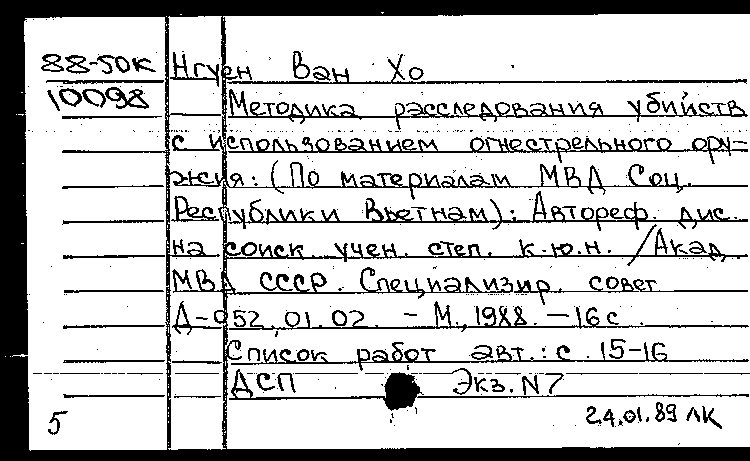 88-50к Нгуен Ван Хо
10098 Методика расследования убийств
с использованием огнестрельного ору-
жия: (По материалам МВД Соц.
Республики Вьетнам): Автореф. дис.
на соиск. учен. степ. к.ю.н. /Акад.
МВД СССР. Специализир. совет
Д-052.01.02. - М., 1988. - 16 с.
Список работ авт.: с. 15-16
ДСП Экз. N7
5 24.01.89 ЛК